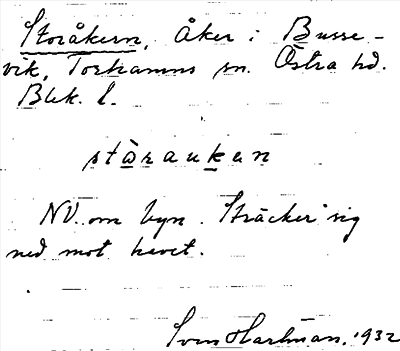 Storåkern, Åker i Busse-
vik, Torhamns sn. Östra hd.
Blek. l.
stàrauken
NV. om byn. Sträcker sig
ned mot havet.
Sven Hartman, 1932